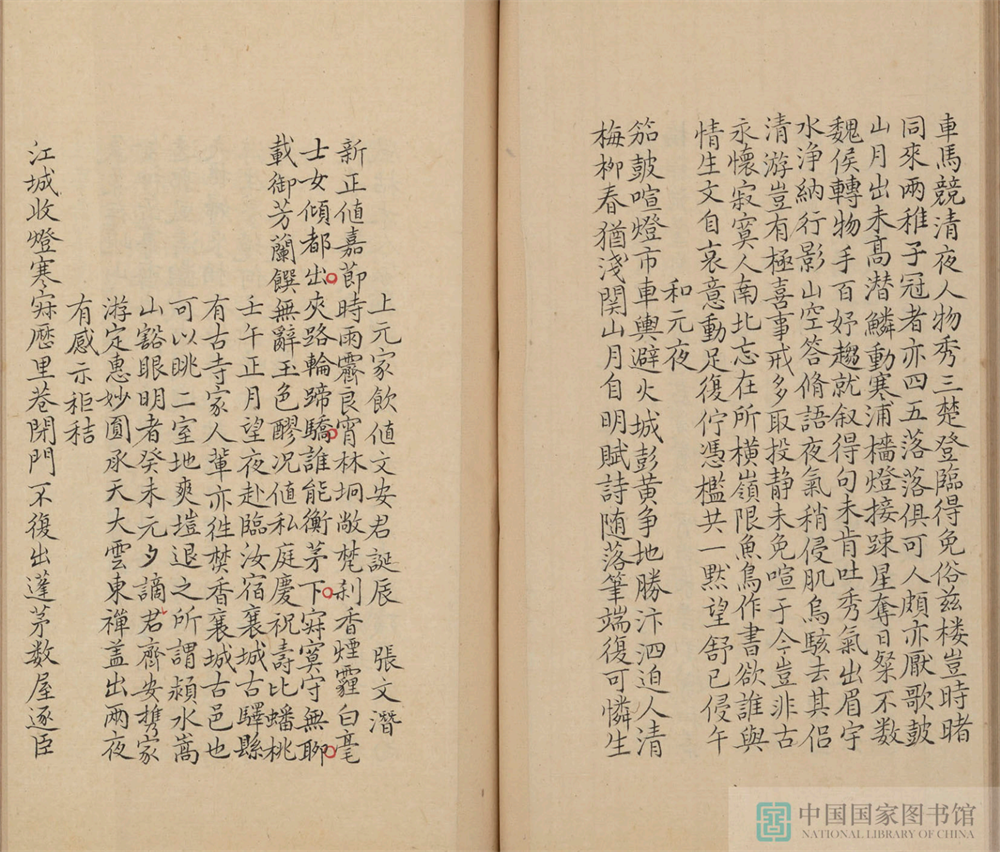 車馬競清夜人物秀三楚登臨得免俗茲楼豈時睹
同來兩稚子冠者亦四五落落俱可人頗亦厭歌鼓
山月出未高潜鱗動寒浦檣燈接踈星奪日粲不数
魏侯轉物手百妙趨就叙得句未肯吐秀氣出眉宇
水净納行影山空答脩語夜氣稍侵肌烏駭去其侣
清游豈有極喜事戒多取投静未免喧于今豈非古
永懷寂寞人南北忘在所横嶺限魚鳥作書欲誰與
情生文自哀意動足復佇憑檻共一默望舒已侵午
和元夜
笳鼓喧燈市車輿避火城彭黄争地勝汴泗迫人清
梅柳春猶淺関山月自明賦詩随落筆端復可憐生
上元家飲値文安君誕辰 張文潛
新正値嘉莭時雨霽良宵林坰敞梵刹香煙霾白毫
士女傾都出夾路輪蹄驕誰能衡茅下寂寞守無聊
載御芳蘭饌無辭玉色醪况値私庭慶祝壽比蟠桃
壬午正月望夜赴臨汝宿襄城古驛縣
有古寺家人輩亦徃焚香襄城古邑也
可以眺二室地爽塏退之所謂潁水嵩
山豁眼明者癸未元夕謫居齊安携家
游定惠妙圓承天大雲東禪盖出兩夜
有感示秬秸
江城收燈寒寂歷里巷閉門不復出蓬茅数屋逐臣
中国国家图书馆
NATIONAL LIBRARY OF CHINA